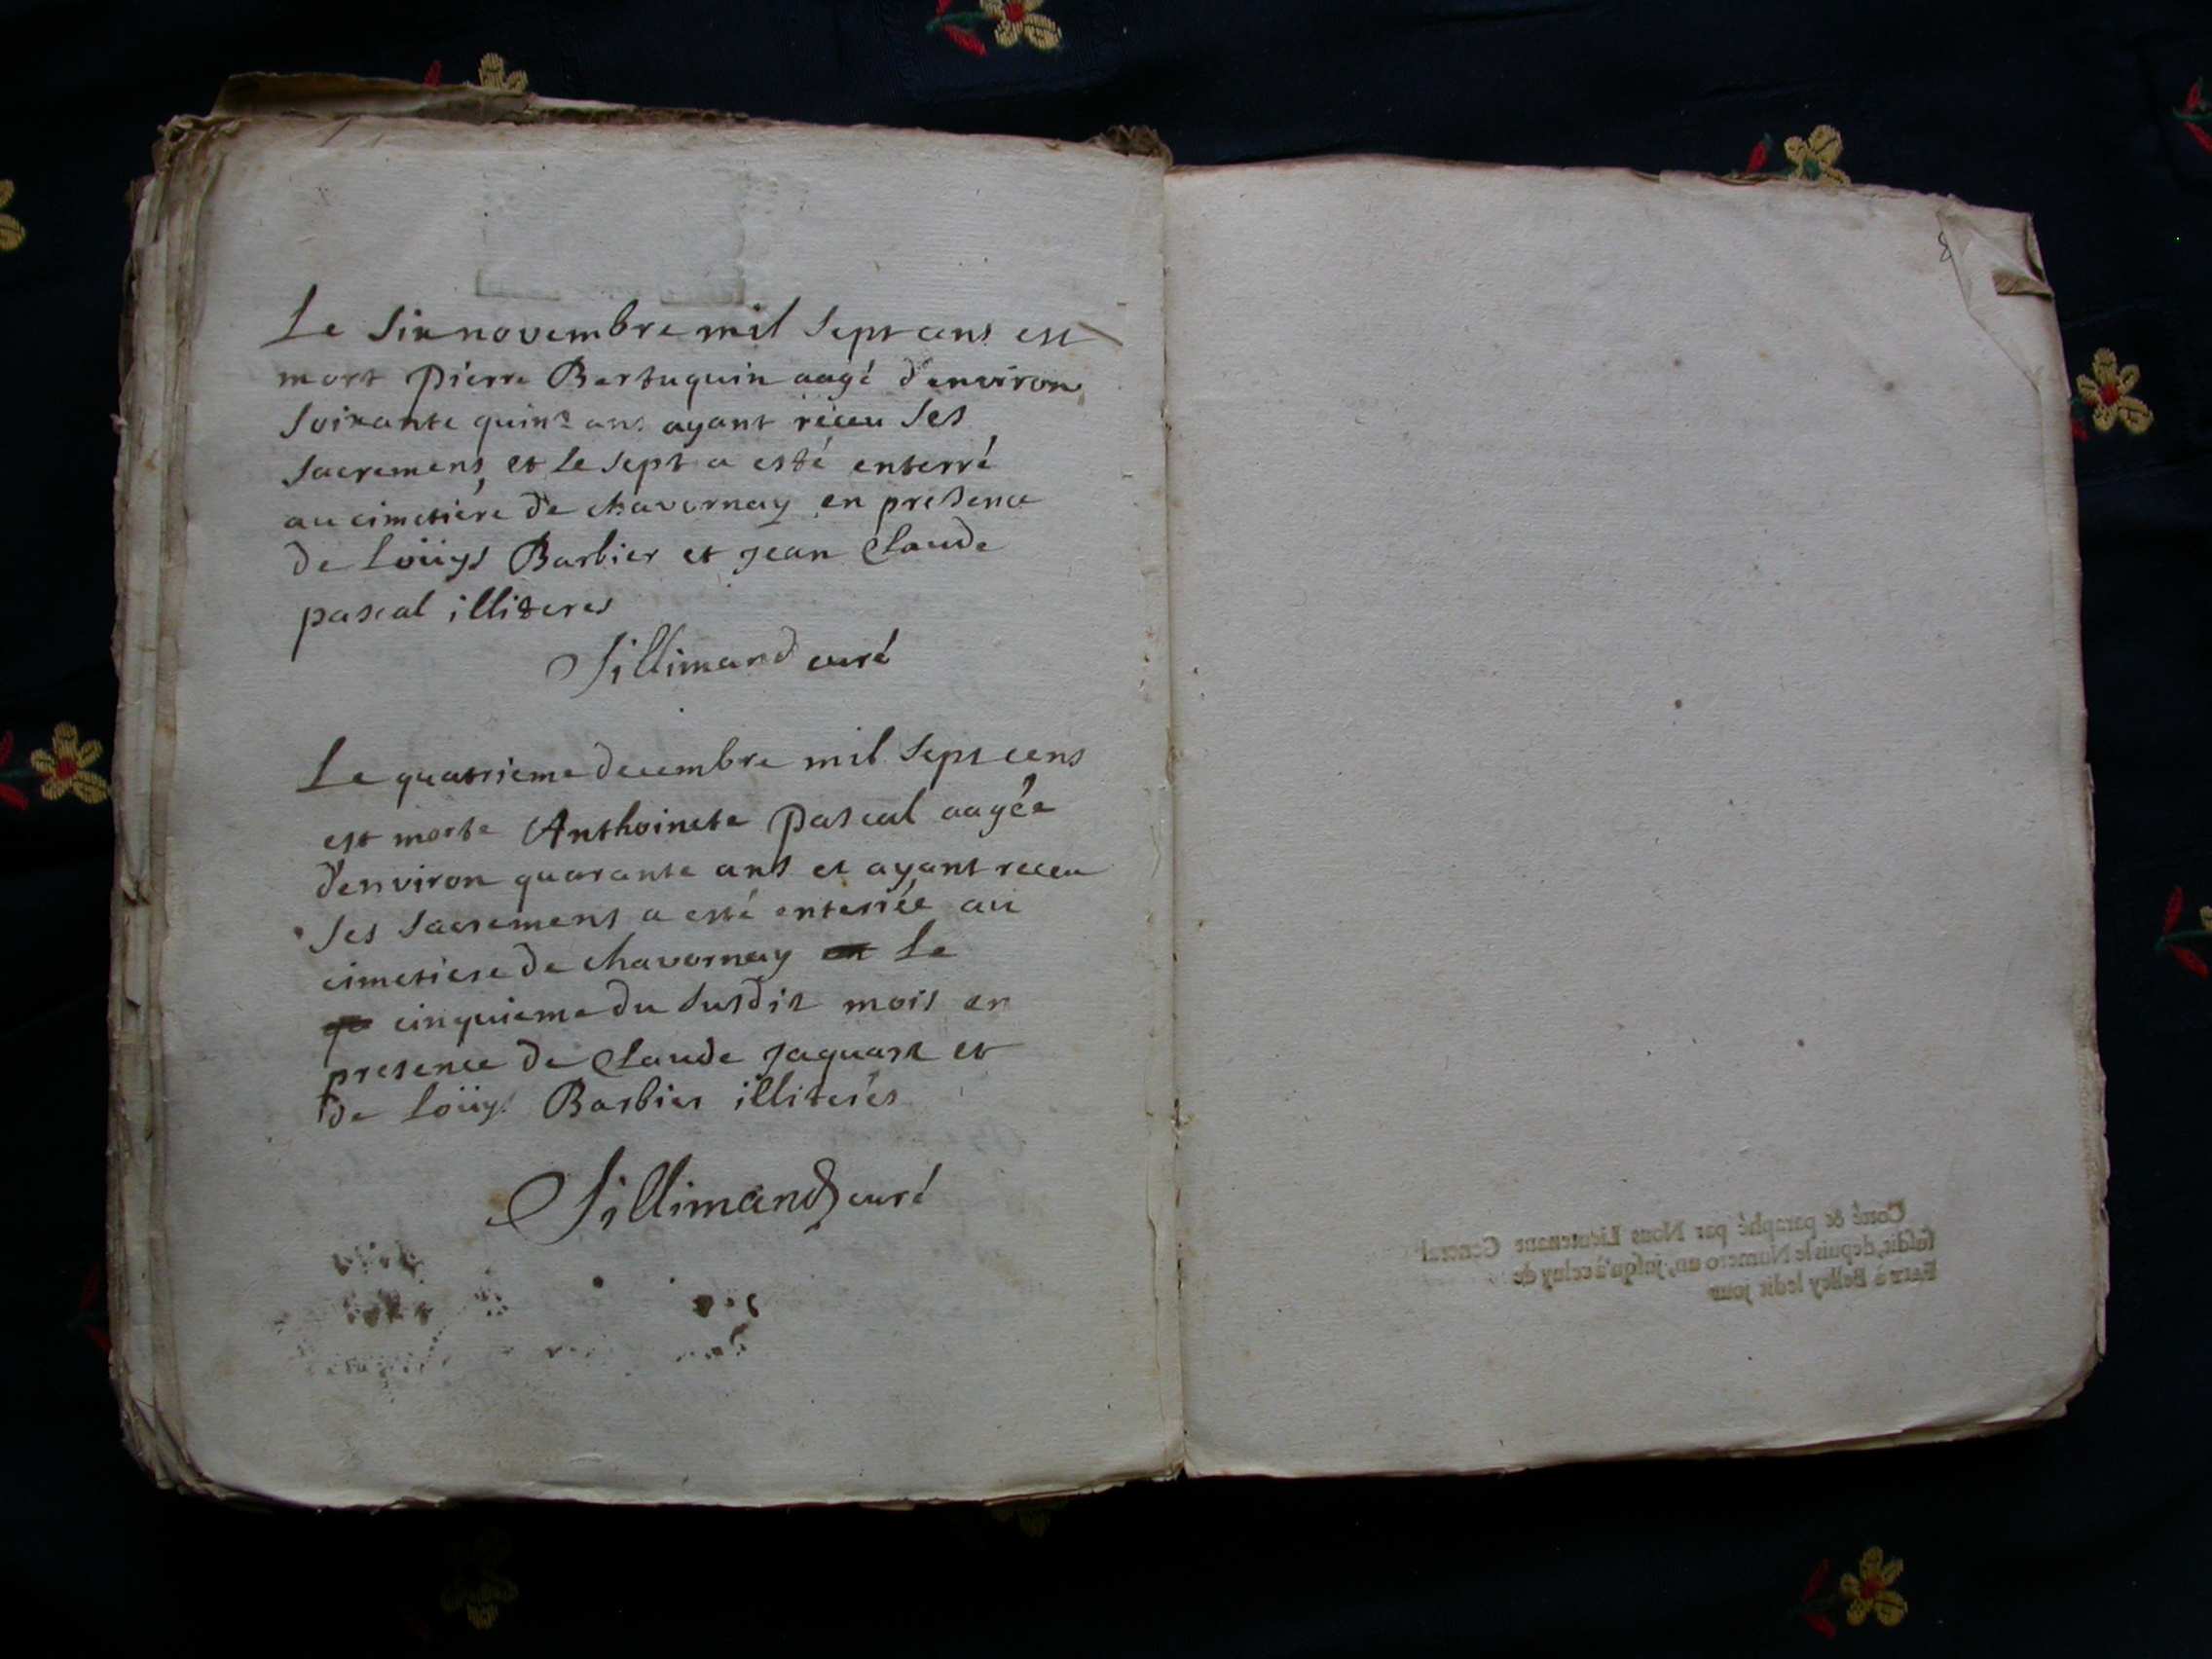 Le six novembre mil sept cens est
mort pierre Bertuquin aagé d'environ
soixante quinze ans ayant receu ses
sacremens, et le sept a esté enterré
au cimetiere de chavornay en presence
de Loüys Barbier et Jean Claude
pascal illiteres
Sillimand curé
Le quatrieme decembre mil sept cens
est morte Anthoinete pascal aagée
d'environ quarante ans et ayant receu
ses sacremens a esté enterrée au
cimetiere de chavornay le
cinquieme du susdit mois en
presence de Claude Jaquart et
de Loüys Barbier illiterés
Sillimand curé
8
Cotté & paraphé par Nous Lieutenant General
susdit, depuis le Numero un, jusqu'à celuy de
Fait à Belley ledit jour